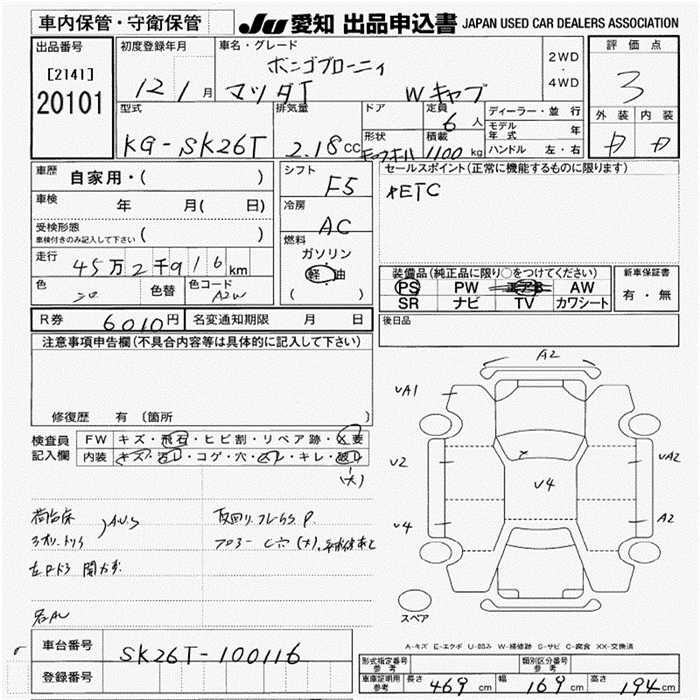 車内保管・守衛保管 JU 愛知 出品申込書 JAPAN USED CAR DEALERS ASSOCIATION
出品番号 初度登録年月 車名・グレード 評価点
[2141] ボンゴブローニィ 2WD
20101 12年1月 マツダT Wキャブ ・ 4WD 3
型式 排気量 ドア 定員 6人 ディーラー・並行 外装 内装
KG-SK26T 2.18cc 形状 積載 1100kg モデル年式 年
ハンドル 左・右
車歴 自家用・( ) シフト F5 セールスポイント(正常に機能するものに限ります)
車検 年 月( 日) 冷房 AC ETC
受検形態 ( )
車検付きのみ記入して下さい
走行 45万2千916km 燃料 ガソリン 軽油 ( )
色 シロ 色替 色コード A2W
装備品(純正品に限り○をつけてください) 新車保証書
PS PW エアB AW 有・無
SR ナビ TV カワシート
R券 6010円 名変通知期限 月 日 後日品
注意事項申告欄(不具合内容等は具体的に記入して下さい)
修復歴 有 〔箇所 〕
検査員 FW キズ・飛石・ヒビ割・リペア跡・X要
記入欄 内装 キズ・汚レ・コゲ・穴・スレ・キレ・破レ
(大)
A2
UA1
U2 UA2
U4
U4 A2
荷台床
スペア
A-キズ E-エクボ U-凹み W-補修跡 S-サビ C-腐食 XX-交換済
車台番号 SK26T-100116
登録番号
型式指定番号 参考 類別区分番号 参考
車庫証明用 参考 長さ 469cm 幅 169cm 高さ 194cm